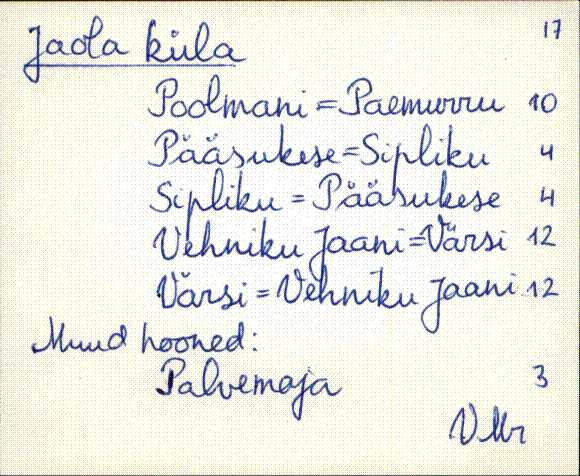 17
Jaola küla
Poolmani = Paemurru 10
Pääsukese = Sipliku 4
Sipliku = Pääsukese 4
Vehniku Jaani = Värsi 12
Värsi = Vehniku Jaani 12
Muud hooned:
Palvemaja 3
VMr